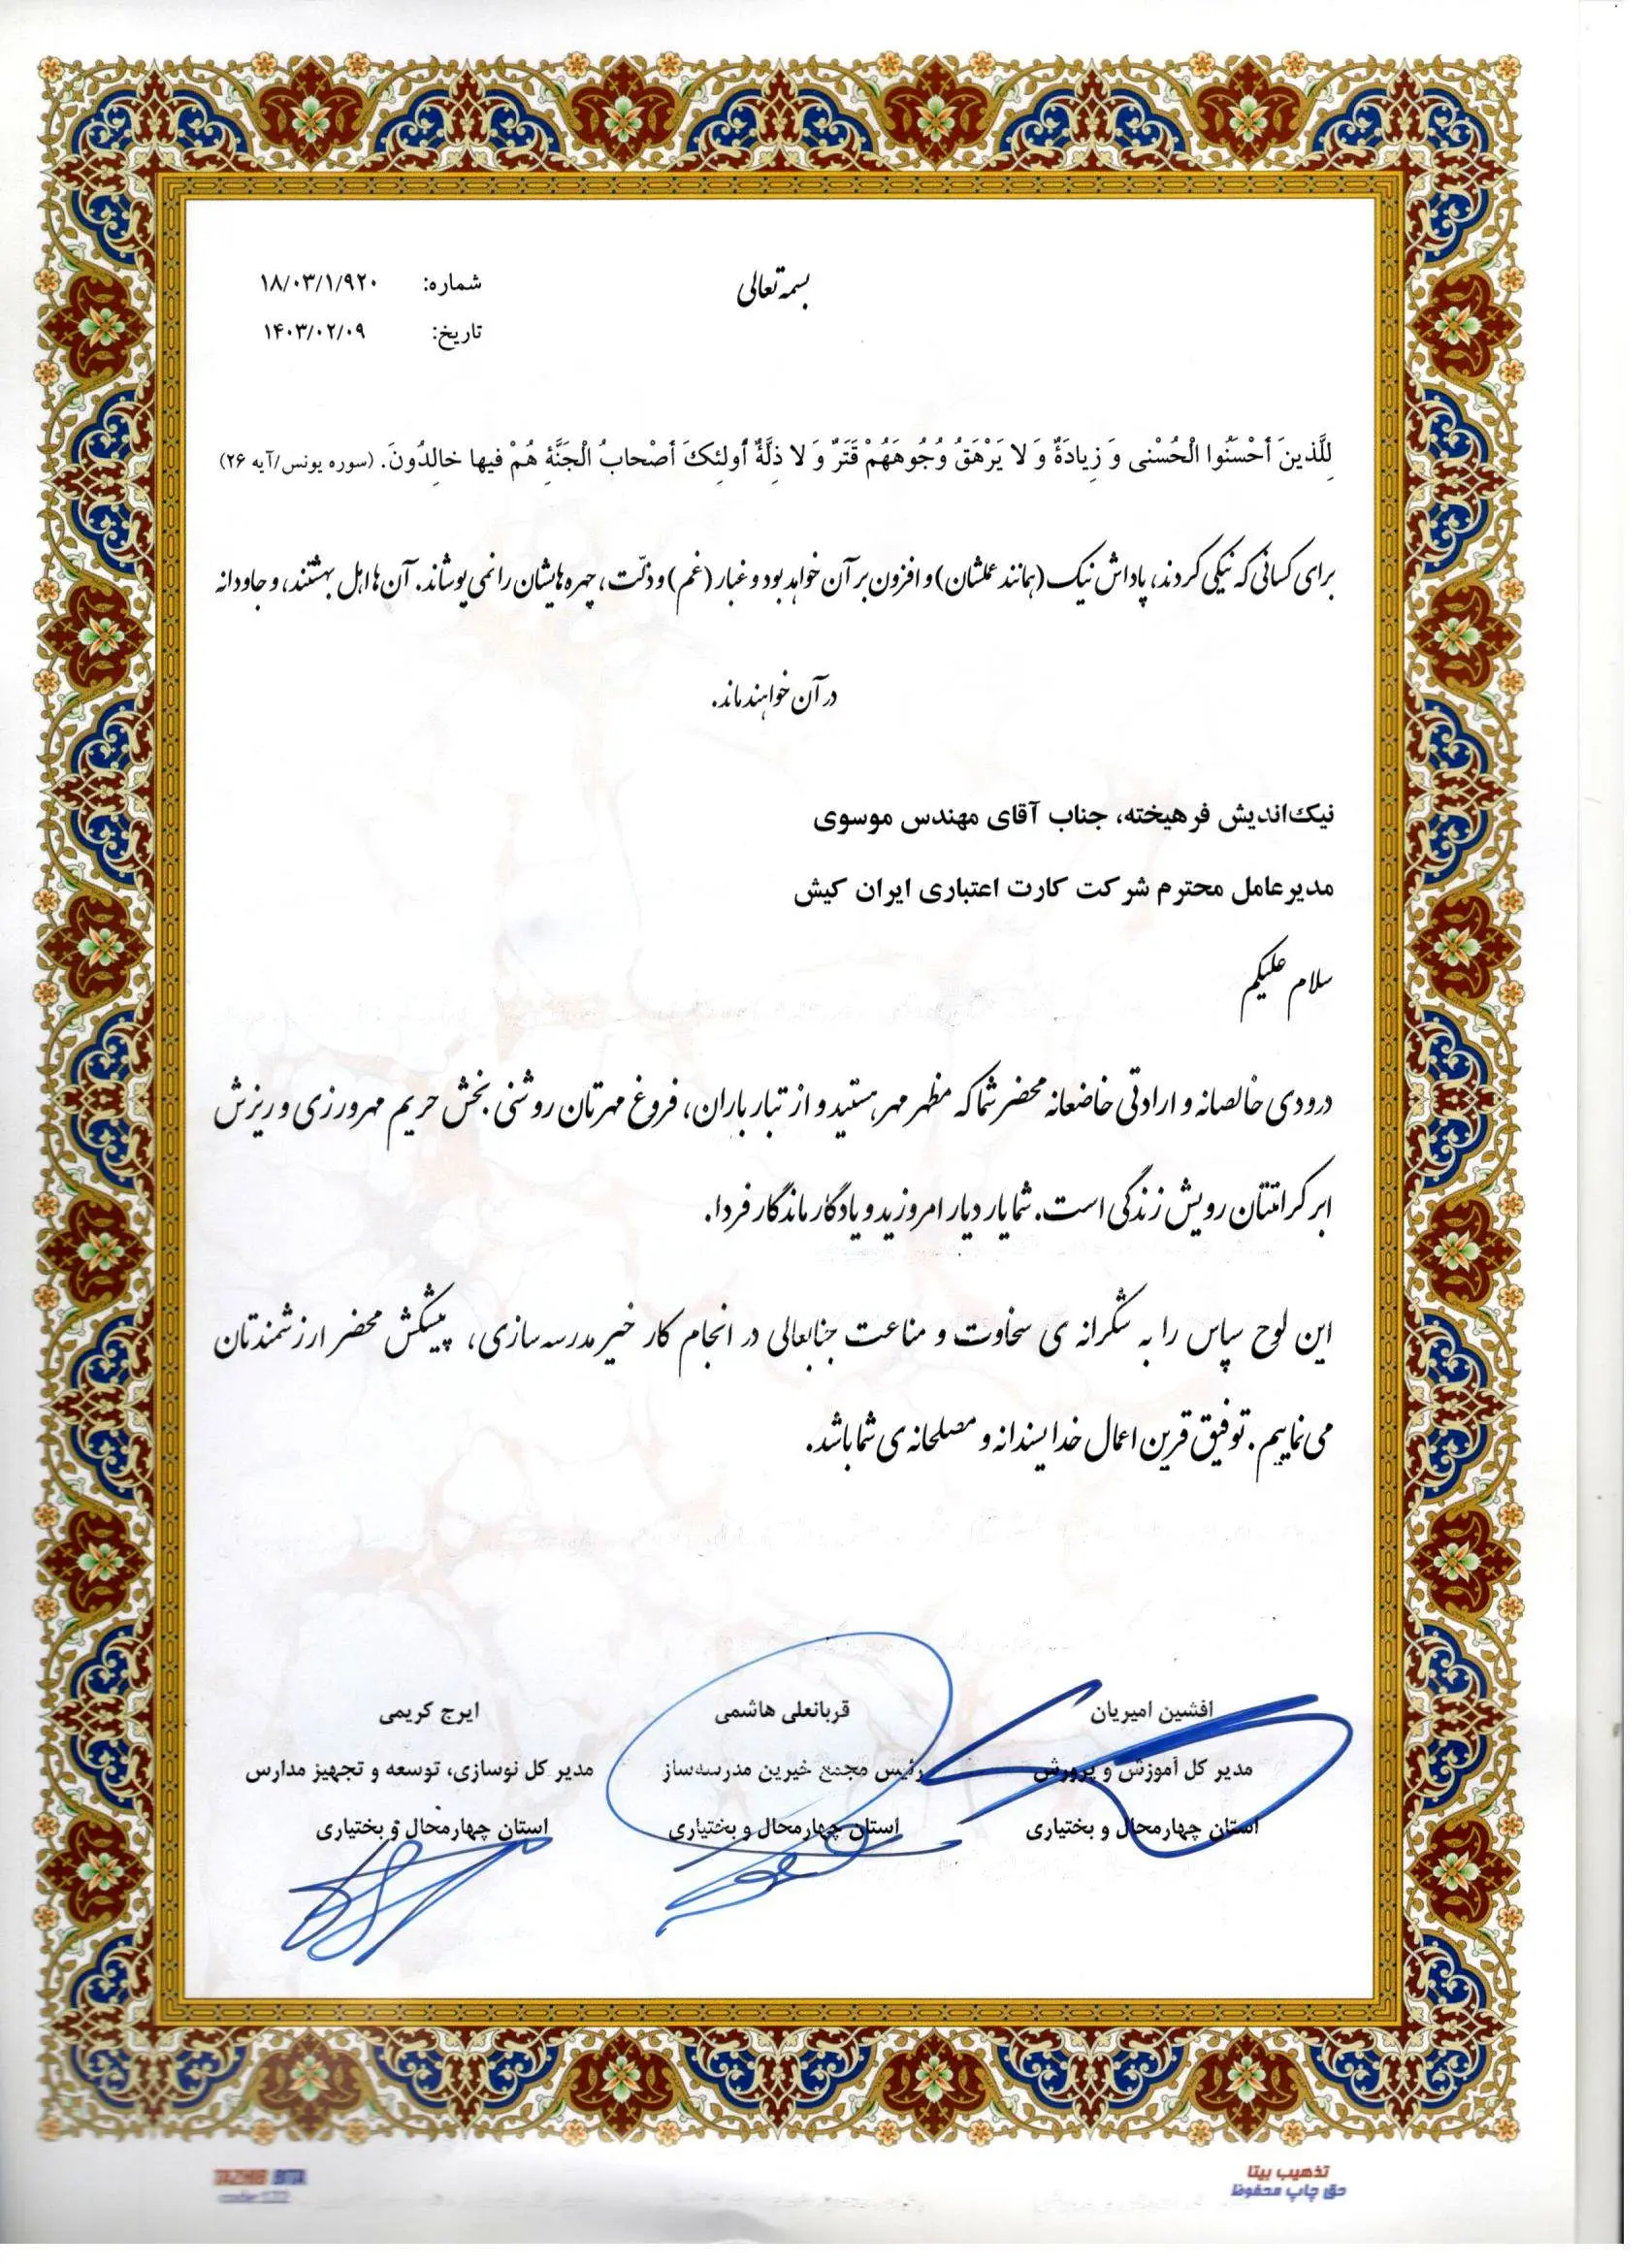 بسمه تعالی
شماره: ۱۸/۰۳/۱/۹۲۰
تاریخ: ۱۴۰۳/۰۲/۰۹
لِلَّذینَ أَحْسَنُوا الْحُسْنی وَ زِیادَةٌ وَ لا یَرْهَقُ وُجُوهَهُمْ قَتَرٌ وَ لا ذِلَّةٌ أُولئِکَ أَصْحابُ الْجَنَّةِ هُمْ فیها خالِدُونَ. (سوره یونس/آیه ۲۶)
برای کسانی که نیکی کردند، پاداش نیک (همانند عملشان) و افزون بر آن خواهد بود و غبار (غم) و ذلّت، چهره هایشان را نمی پوشاند. آن ها اهل بهشتند، و جاودانه
در آن خواهند ماند.
نیک‌اندیش فرهیخته، جناب آقای مهندس موسوی
مدیرعامل محترم شرکت کارت اعتباری ایران کیش
سلام علیکم
درودی خالصانه و ارادتی خاضعانه محضر شما که مظهر مهر هستید و از تبار باران، فروغ مهرتان روشنی بخش حریم مهرورزی و ریزش
ابر کرامتتان رویش زندگی است. شما یار دیار امروزید و یادگار ماندگار فردا.
این لوح سپاس را به شکرانه ی سخاوت و مناعت جنابعالی در انجام کار خیر مدرسه سازی، پیشکش محضر ارزشمندتان
می نماییم. توفیق قرین اعمال خداپسندانه و مصلحانه ی شما باشد.
افشین امیریان
مدیر کل آموزش و پرورش
استان چهارمحال و بختیاری
قربانعلی هاشمی
رئیس مجمع خیرین مدرسه‌ساز
استان چهارمحال و بختیاری
ایرج کریمی
مدیر کل نوسازی، توسعه و تجهیز مدارس
استان چهارمحال و بختیاری
تذهیب بیتا
حق چاپ محفوظ
TAZHIB BITA